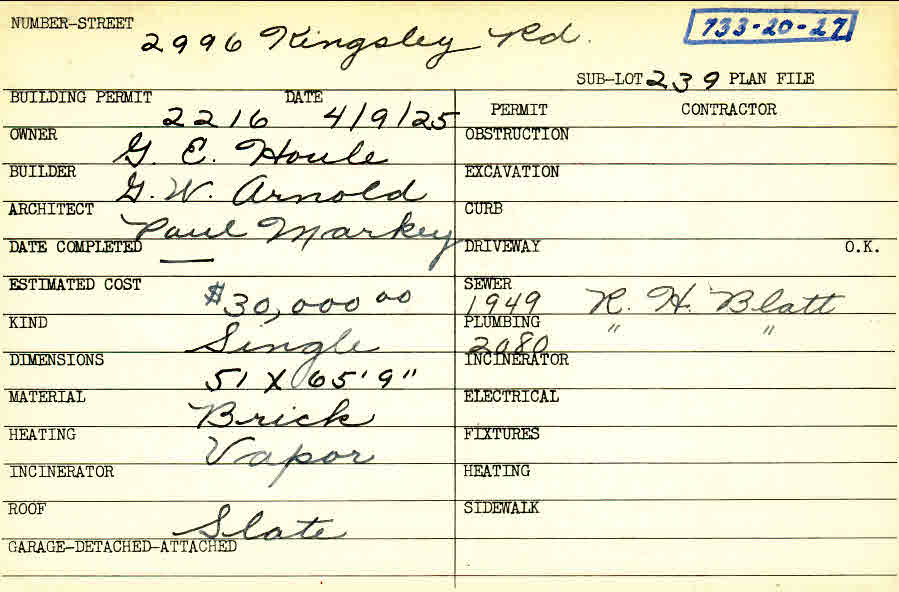 NUMBER-STREET 2996 Kingsley Rd. 733-20-27
SUB-LOT 239 PLAN FILE
BUILDING PERMIT 2216 DATE 4/9/25
OWNER G. E. Houle
BUILDER G. W. Arnold
ARCHITECT Paul Markey
DATE COMPLETED —
ESTIMATED COST $30,000 00
KIND Single
DIMENSIONS 51 X 65'9"
MATERIAL Brick
HEATING Vapor
INCINERATOR
ROOF Slate
GARAGE-DETACHED-ATTACHED
PERMIT CONTRACTOR
OBSTRUCTION
EXCAVATION
CURB
DRIVEWAY O.K.
SEWER 1949 R. H. Blatt
PLUMBING 2080 " "
INCINERATOR
ELECTRICAL
FIXTURES
HEATING
SIDEWALK